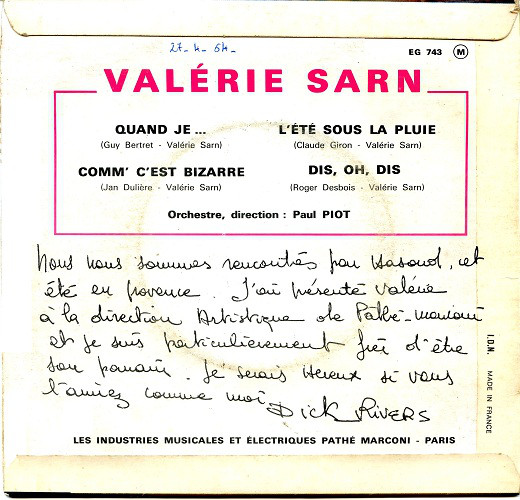 27-4-64-
EG 743 M
VALÉRIE SARN
QUAND JE ...
(Guy Bertret - Valérie Sarn)
L'ÉTÉ SOUS LA PLUIE
(Claude Giron - Valérie Sarn)
COMM' C'EST BIZARRE
(Jan Dulière - Valérie Sarn)
DIS, OH, DIS
(Roger Desbois - Valérie Sarn)
Orchestre, direction : Paul PIOT
Nous nous sommes rencontrés par hasard, cet
été en provence. J'ai présenté Valérie
à la direction Artistique de Pathé-Marconi
et je suis particulièrement fier d'être
son parrain. Je serais heureux si vous
l'aimiez comme moi
Dick RIVERS
LES INDUSTRIES MUSICALES ET ÉLECTRIQUES PATHÉ MARCONI - PARIS
I.D.N. MADE IN FRANCE